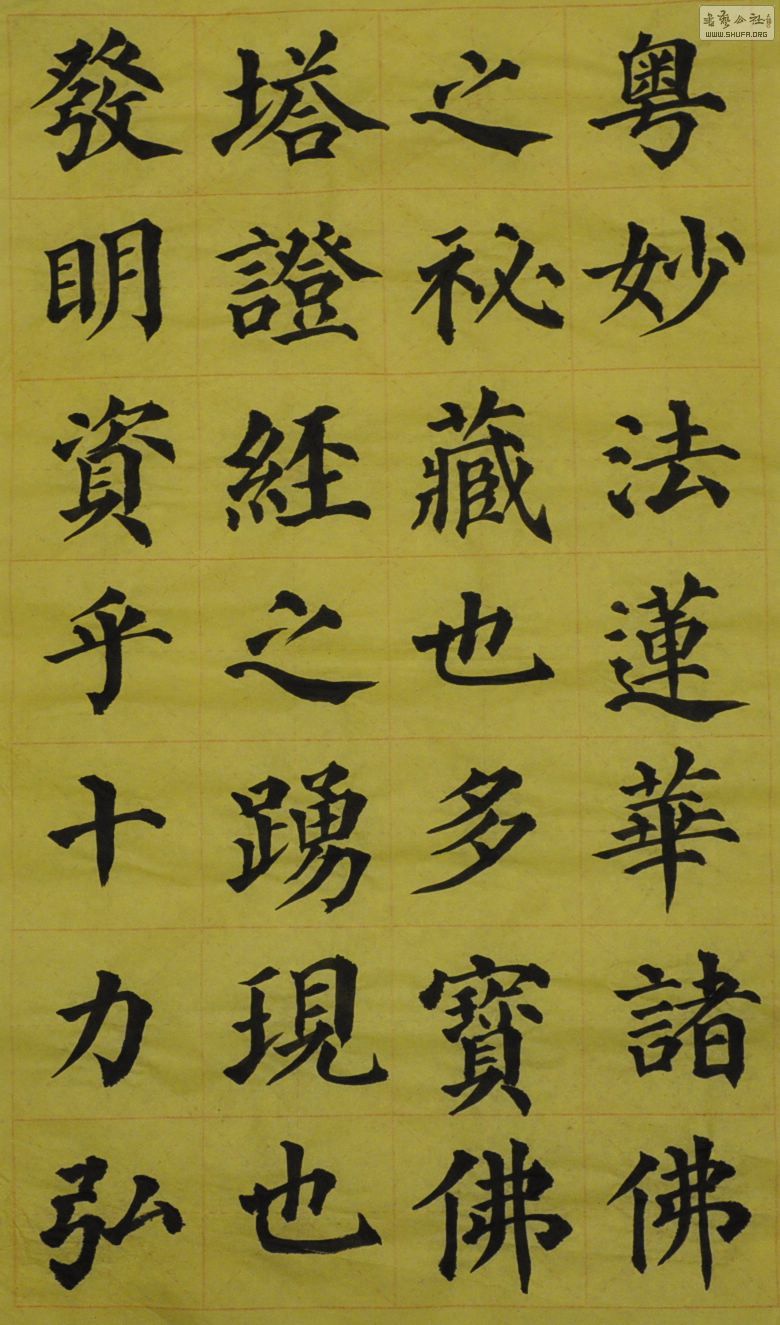 粵妙法蓮華諸佛
之祕藏也多寶佛
塔證經之踴現也
發明資乎十力弘
WWW.SHUFA.ORG